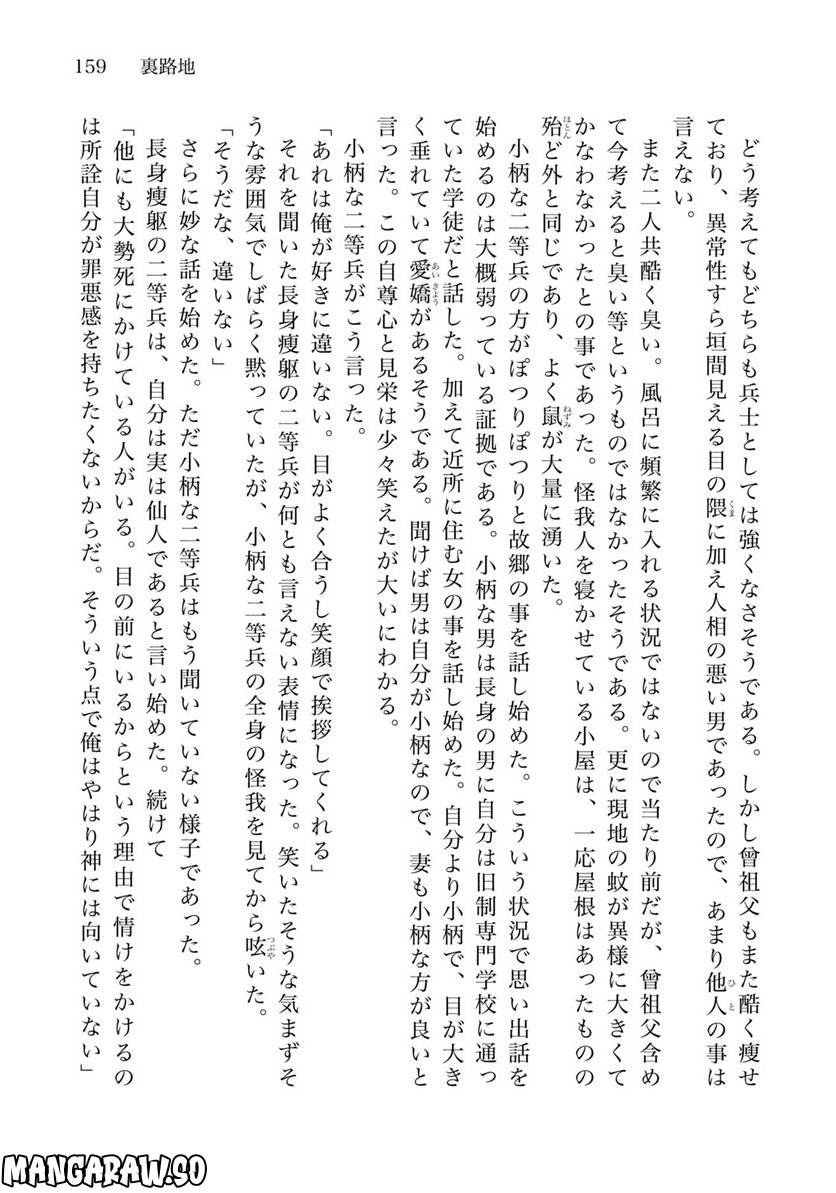 159　裏路地
　どう考えてもどちらも兵士としては強くなさそうである。しかし曾祖父もまた酷く痩せ
ており、異常性すら垣間見える目の隈に加え人相の悪い男であったので、あまり他人の事は
言えない。
　また二人共酷く臭い。風呂に頻繁に入れる状況ではないので当たり前だが、曾祖父含め
て今考えると臭い等というものではなかったそうである。更に現地の蚊が異様に大きくて
かなわなかったとの事であった。怪我人を寝かせている小屋は、一応屋根はあったものの
殆ど外と同じであり、よく鼠が大量に湧いた。
　小柄な二等兵の方がぽつりぽつりと故郷の事を話し始めた。こういう状況で思い出話を
始めるのは大概弱っている証拠である。小柄な男は長身の男に自分は旧制専門学校に通っ
ていた学徒だと話した。加えて近所に住む女の事を話し始めた。自分より小柄で、目が大き
く垂れていて愛嬌があるそうである。聞けば男は自分が小柄なので、妻も小柄な方が良いと
言った。この自尊心と見栄は少々笑えたが大いにわかる。
　小柄な二等兵がこう言った。
「あれは俺が好きに違いない。目がよく合うし笑顔で挨拶してくれる」
　それを聞いた長身痩躯の二等兵が何とも言えない表情になった。笑いたそうな気まずそ
うな雰囲気でしばらく黙っていたが、小柄な二等兵の全身の怪我を見てから呟いた。
「そうだな、違いない」
　さらに妙な話を始めた。ただ小柄な二等兵はもう聞いていない様子であった。
　長身痩躯の二等兵は、自分は実は仙人であると言い始めた。続けて
「他にも大勢死にかけている人がいる。目の前にいるからという理由で情けをかけるの
は所詮自分が罪悪感を持ちたくないからだ。そういう点で俺はやはり神には向いていない」
くま
ひと
ほとん
ねずみ
あいきょう
つぶや
MANGARAW.SO